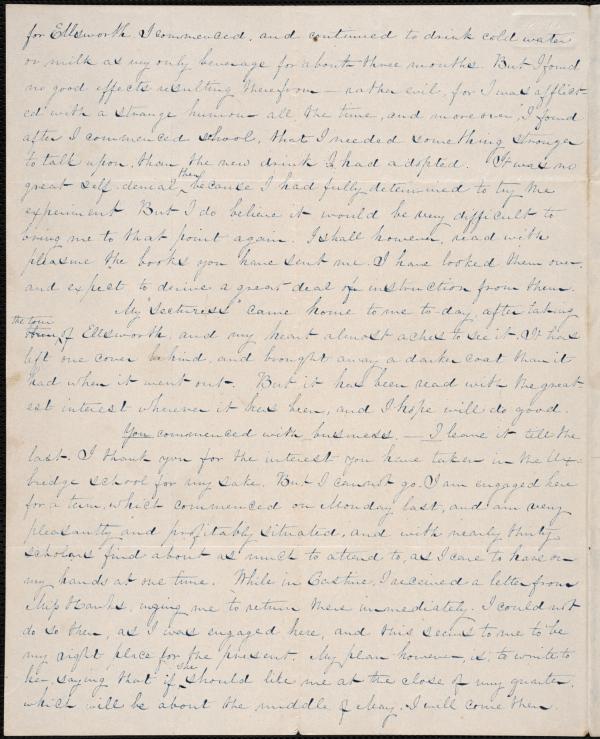 for Ellsworth I commenced, and continued to drink cold water
or milk as my only beverage for about three months. But I found
no good effects resulting therefrom – rather evil, for I was afflict-
ed with a strange humor all the time, and moreover, I found
after I commenced school, that I needed something stronger
to talk upon, than the new drink I had adopted. It was no
great self-denial, then, because I had fully determined to try the
experiment. But I do believe it would be very difficult to
bring me to that point again. I shall however, read with
pleasure the books you have sent me. I have looked them over
and expect to derive a great deal of instruction from them.
My "Lecturess" came home to me to-day, after taking
the tour of Ellsworth, and my heart almost aches to see it. It has
left one cover behind, and brought away a darker coat than it
had when it went out. But it has been read with the great
est interest wherever it has been, and I hope will do good.
You commenced with business, – I leave it till the
last. I thank you for the interest you have taken in the Ux-
bridge school for my sake. But I cannot go. I am engaged here
for a term, which commenced on Monday last, and am very
pleasantly and profitably situated, and with nearly thirty
scholars find about as much to attend to, as I care to have on
my hands at one time. While in Castine, I received a letter from
Miss Hawks, urging me to return there immediately. I could not
do so then, as I was engaged here, and this seems to me to be
my right place for the present. My plan however, is, to write to
her, saying that if she should like me at the close of my quarter,
which will be about the middle of May, I will come then.